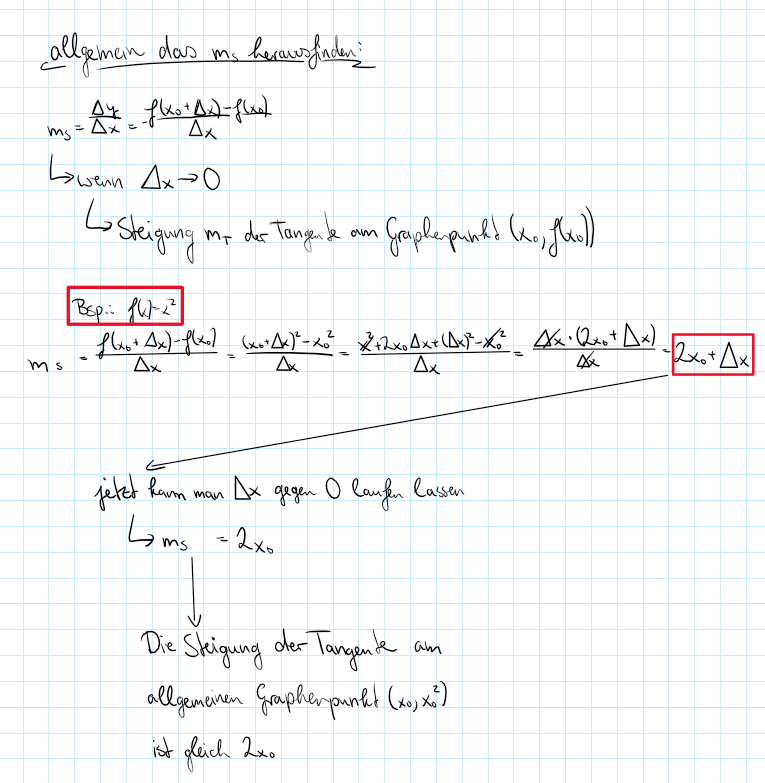 allgemein das mₛ herausfinden:
mₛ = Δy/Δx = f(x₀+Δx)-f(x₀)/Δx
↳ wenn Δx → 0
↳ Steigung m_T der Tangente am Graphenpunkt (x₀, f(x₀))
Bsp.: f(x)=x²
mₛ = f(x₀+Δx)-f(x₀)/Δx = (x₀+Δx)²-x₀²/Δx = x²+2x₀Δx+(Δx)²-x₀²/Δx = Δx·(2x₀+Δx)/Δx = 2x₀+Δx
jetzt kann man Δx gegen 0 laufen lassen
↳ mₛ = 2x₀
Die Steigung der Tangente am
allgemeinen Graphenpunkt (x₀, x₀²)
ist gleich 2x₀